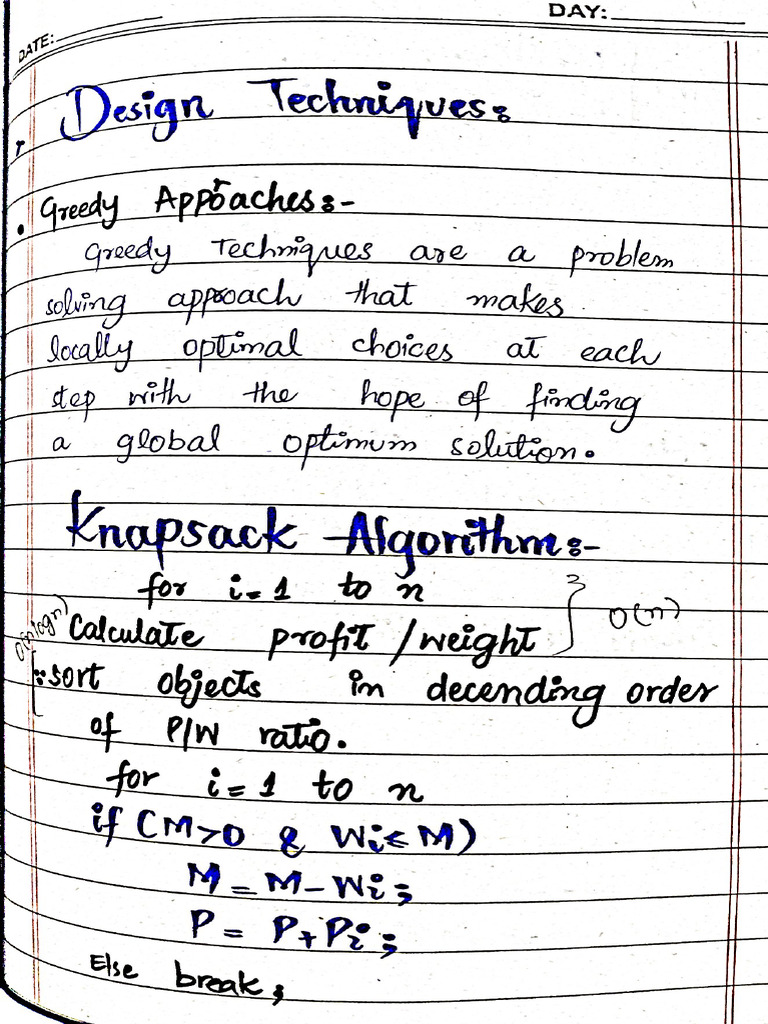 DAY:
DATE:
Design Techniques:
• Greedy Approaches:-
Greedy Techniques are a problem
solving approach that makes
locally optimal choices at each
step with the hope of finding
a global optimum solution.
Knapsack Algorithm:-
for i=1 to n
Calculate profit/weight } O(n)
O(nlogn)
:sort objects in decending order
of P/W ratio.
for i=1 to n
if (M>0 & Wi≤M)
M=M-Wi;
P= P+Pi;
Else break;